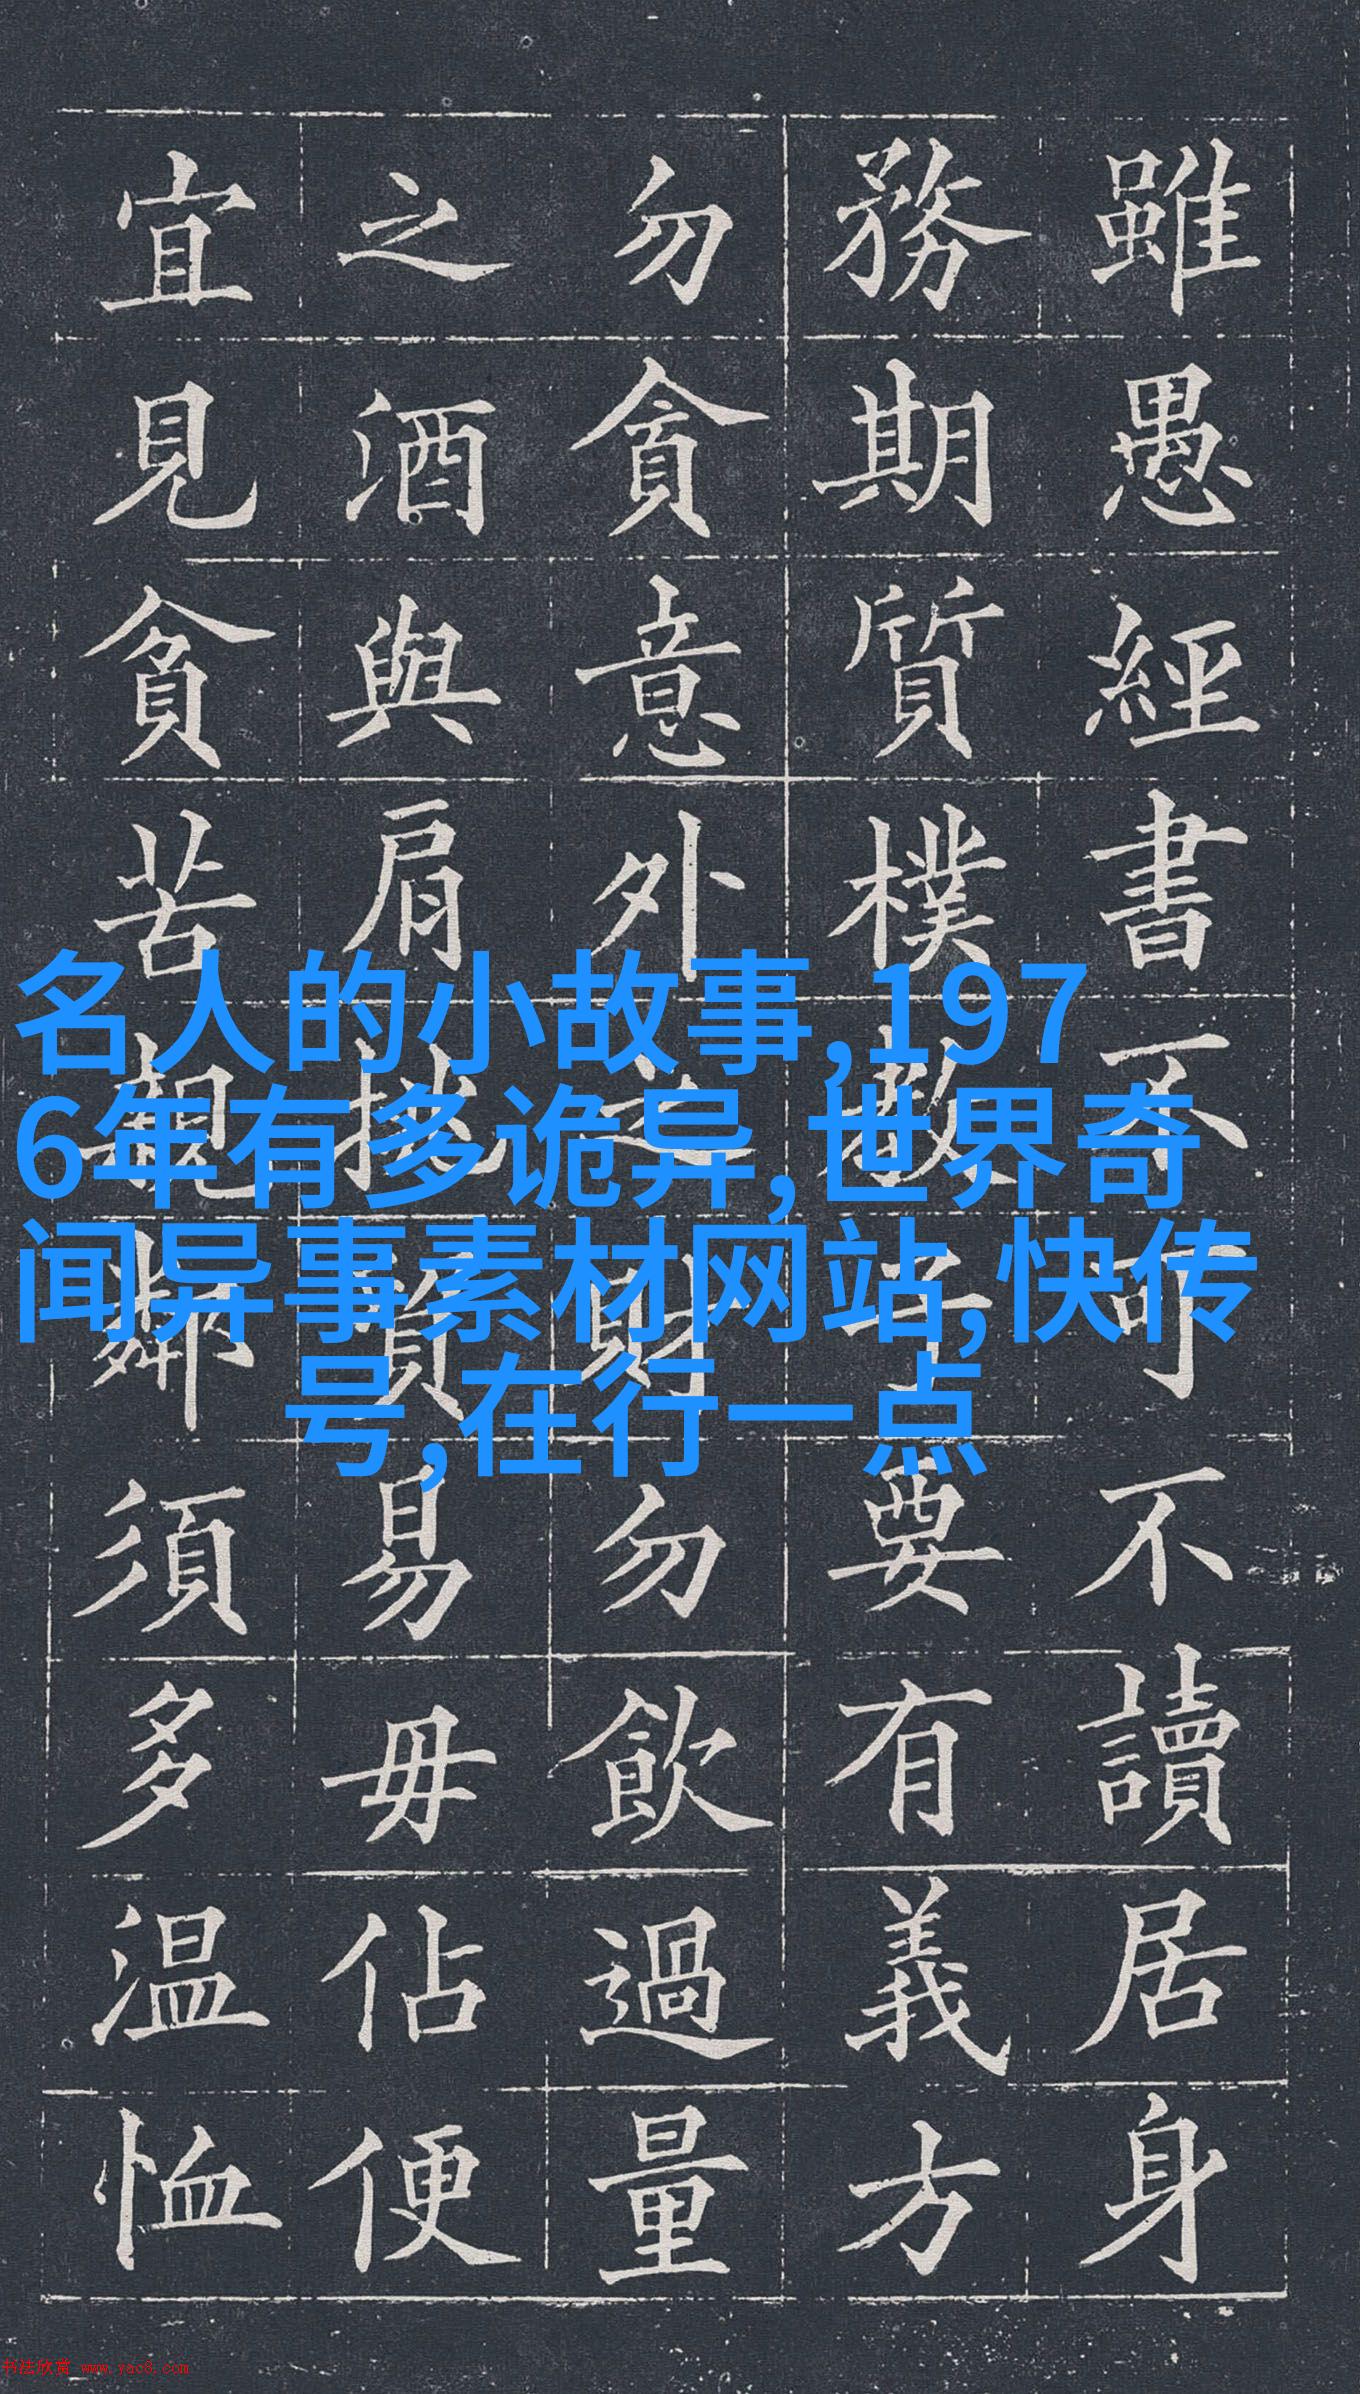 雖愚經書不可不讀居身
務期質樸教子要有義方
勿貪意外之財勿飲過量
之酒與肩挑貿易毋佔便
宜見貧苦親鄰須多温恤
名人的小故事,197
6年有多诡异,世界奇
闻异事素材网站,快传
号,在行一点
书法欣赏 www.yac8.com